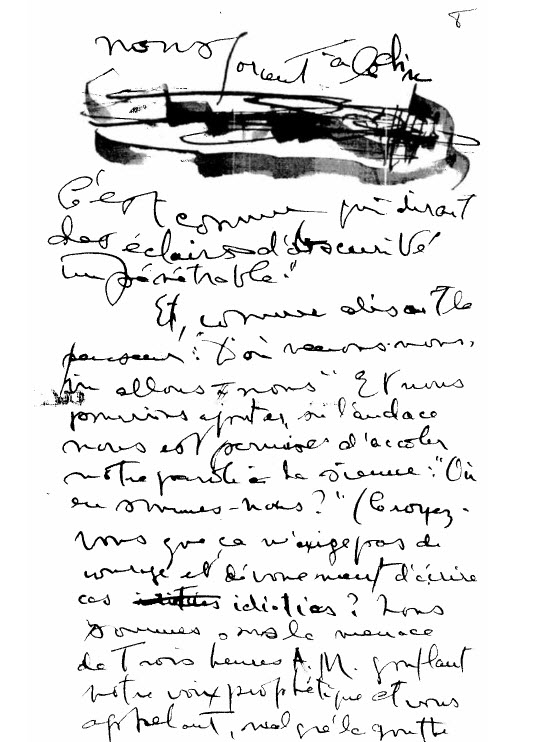 8
nous
C'est comme qui dirait
des éclairs d'obscurité
impénétrable."
Et, comme disait le
penseur: "D'où venons-nous,
où allons-nous" Et nous
pourrions ajouter, si l'audace
nous est permise d'accoler
notre parole à la sienne: "Où
en sommes-nous?" (Croyez-
vous que ça n'exige pas de
courage et dévouement d'écrire
ces idioties? Nous
sommes sous la menace
de Trois heures A.M. gonflant
notre voix prophétique et vous
appelant, malgré la goutte